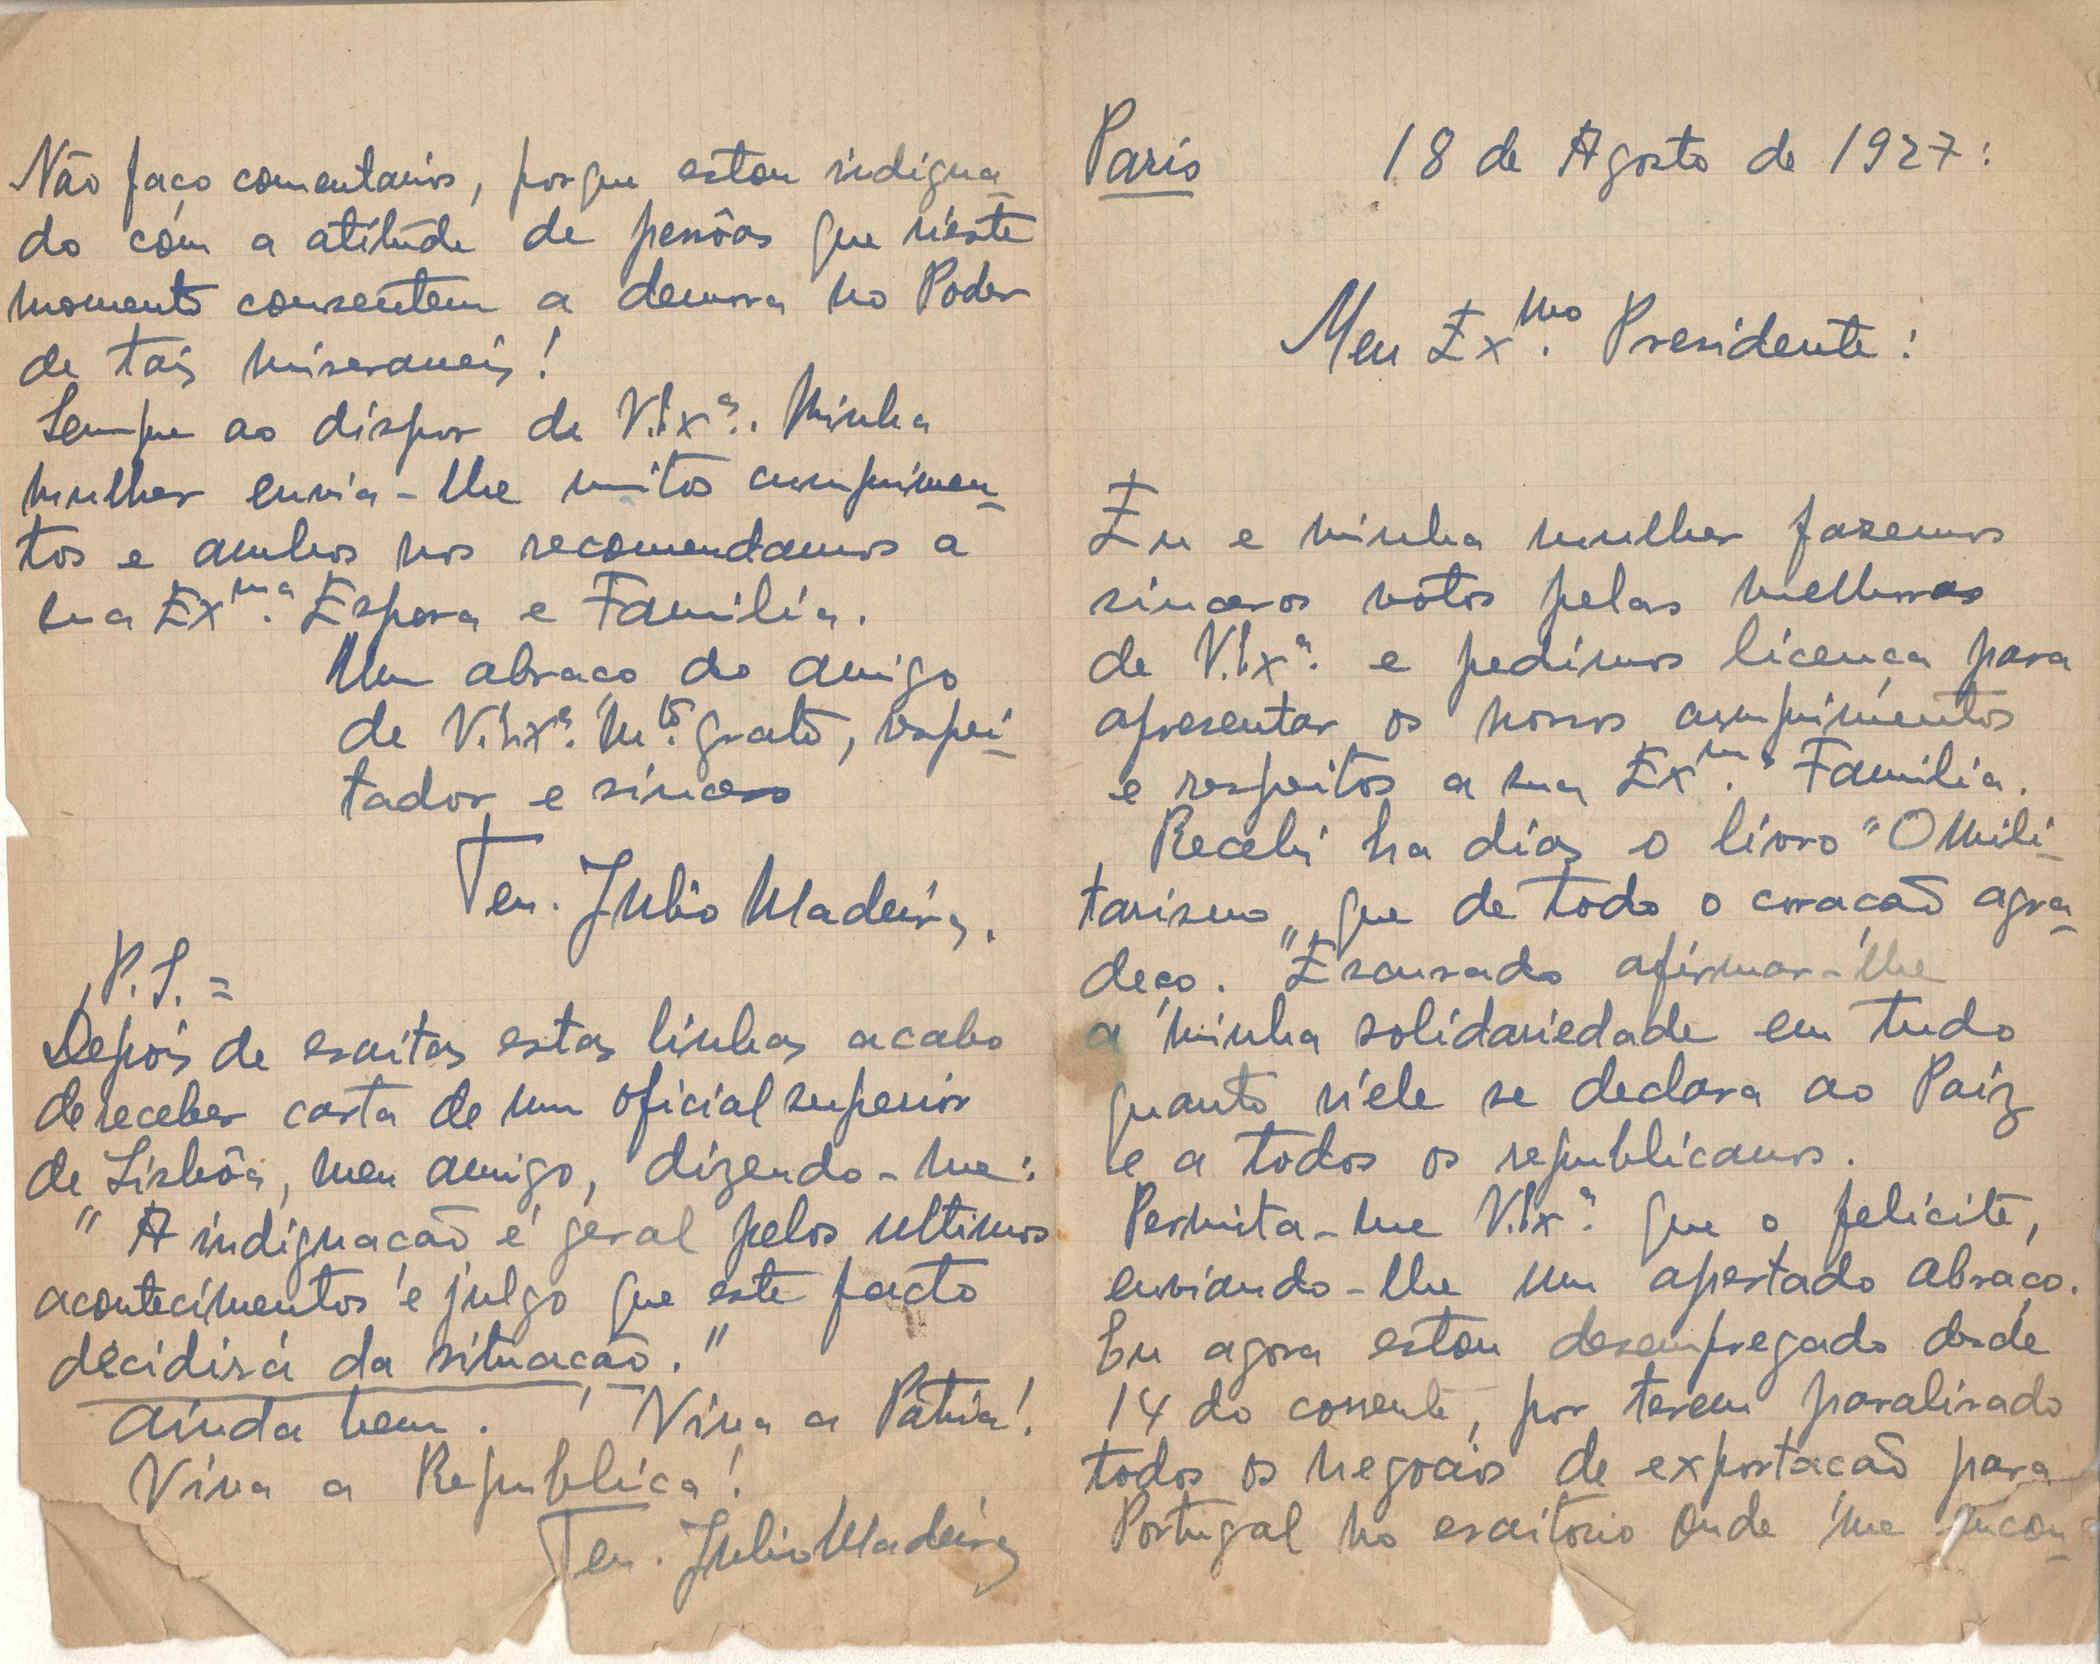 Paris 18 de Agosto de 1927:
Meu Exmo. Presidente:
Eu e minha mulher fazemos
sinceros votos pelas melhoras
de V. Exª. e pedimos licença para
apresentar os nossos cumprimentos
e respeitos a sua Exmª. Familia.
Recebi ha dias o livro "O Mili-
tarismo", que de todo o coração agra-
deço. Escusado afirmar-lhe
a minha solidariedade em tudo
quanto n'ele se declara ao Paiz
e a todos os republicanos.
Permita-me V. Exª. que o felicite,
enviando-lhe um apertado abraço.
Eu agora estou desempregado desde
14 do corrente, por terem paralisado
todos os negocios de exportação para
Portugal no escritorio onde me encon-
Não faço comentarios, porque estou indigna-
do com a atitude de pessôas que n'este
momento consentem a demora no Poder
de tais miseraveis!
Sempre ao dispor de V. Exª. Minha
mulher envia-lhe muitos cumprimen-
tos e ambos nos recomendamos a
sua Exma. Espora e Familia.
Um abraço do amigo
de V. Exª. Mto. grato, respei-
tador e sincero
Ten. Julio Madeira.
P.S. =
Depois de escritas estas linhas acabo
de receber carta de um oficial superior
de Lisbôa, meu amigo, dizendo-me:
"A indignação é geral pelos ultimos
acontecimentos e julgo que este facto
decidirá da situação."
Ainda bem. Viva a Patria!
Viva a Republica!
Ten. Julio Madeira